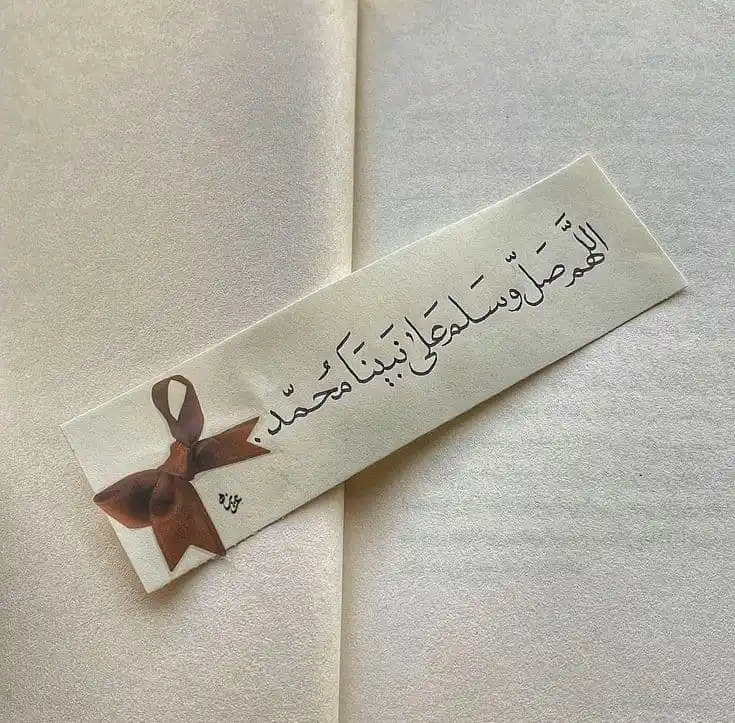 اللَّهم صَل وّسَلم عَلىٰ نَبينَا مُحمّد.